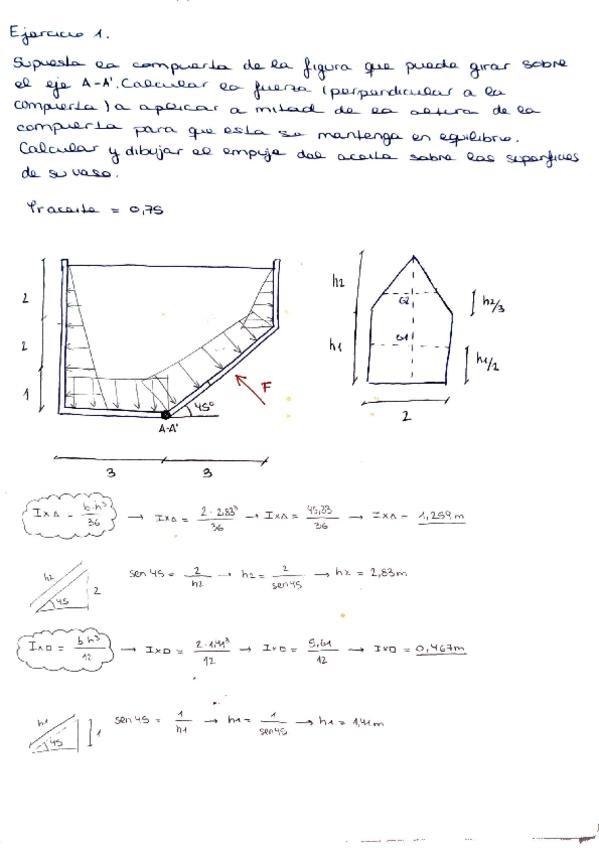 Ejercicio 1.
Supuesta la compuerta de la figura que puede girar sobre
el eje A-A'. Calcular la fuerza (perpendicular a la
compuerta) a aplicar a mitad de la altura de la
compuerta para que esta se mantenga en equilibrio.
Calcular y dibujar el empuje del aceite sobre las superficies
de su vaso.
γr aceite = 0,75
2
2
1
45°
F
A-A'
3
3
h2
h1
G2
G1
h2/3
h1/2
2
IxΔ = b·h³/36 → IxΔ = 2·2,83³/36 → IxΔ = 45,33/36 → IxΔ = 1,259 m
h2
45
2
sen 45 = 2/h2 → h2 = 2/sen45 → h2 = 2,83m
Ix□ = b h³/12 → Ix□ = 2·1,41³/12 → Ix□ = 5,61/12 → Ix□ = 0,467 m
h1
45
1
sen 45 = 1/h1 → h1 = 1/sen45 → h1 = 1,41m